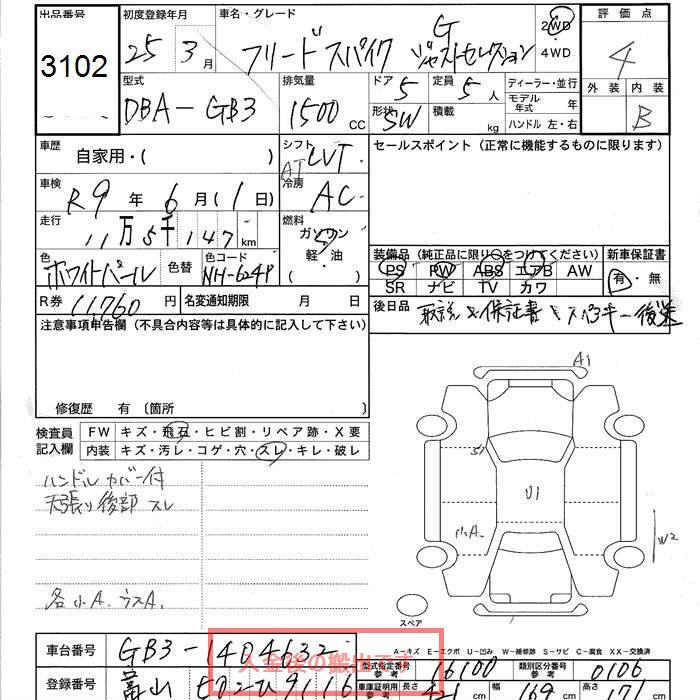 出品番号 初度登録年月 車名・グレード 評価点
3102 25年 3月 フリードスパイク G ジャストセレクション 2WD ・4WD 4
型式 排気量 ドア 定員 ディーラー・並行 外装 内装
DBA-GB3 1500cc 5 5人 モデル年式 年 B
形状 SW 積載 kg ハンドル 左・右
車歴 自家用・( ) シフト AT CVT セールスポイント（正常に機能するものに限ります）
車検 R9年 6月(1日) 冷房 AC
走行 11万5千147km 燃料 ガソリン・軽・油 ( )
色 ホワイトパール 色替 色コード NH-624P
装備品（純正品に限り○をつけてください） 新車保証書
PS PW ABS エアB AW 有・無
SR ナビ TV カワ
R券 11,760円 名変通知期限 月 日
後日品 取説 保証書 スペアキー 後送
注意事項申告欄（不具合内容等は具体的に記入して下さい）
修復歴 有〔箇所 〕
検査員記入欄 FW キズ・飛石・ヒビ割・リペア跡・X要
内装 キズ・汚レ・コゲ・穴・スレ・キレ・破レ
ハンドルカバー付
天張り後部スレ
各小A. ウスA.
A1
S1
U1
小A.
W2
スペア
A－キズ E－エクボ U－凹み W－補修跡 S－サビ C－腐食 XX－交換済
車台番号 GB3-1404632 型式指定番号 参考 16100 類別区分番号 参考 0106
入金後の搬出です
登録番号 富山 車庫証明用 参考 長さ 421cm 幅 169cm 高さ 177cm